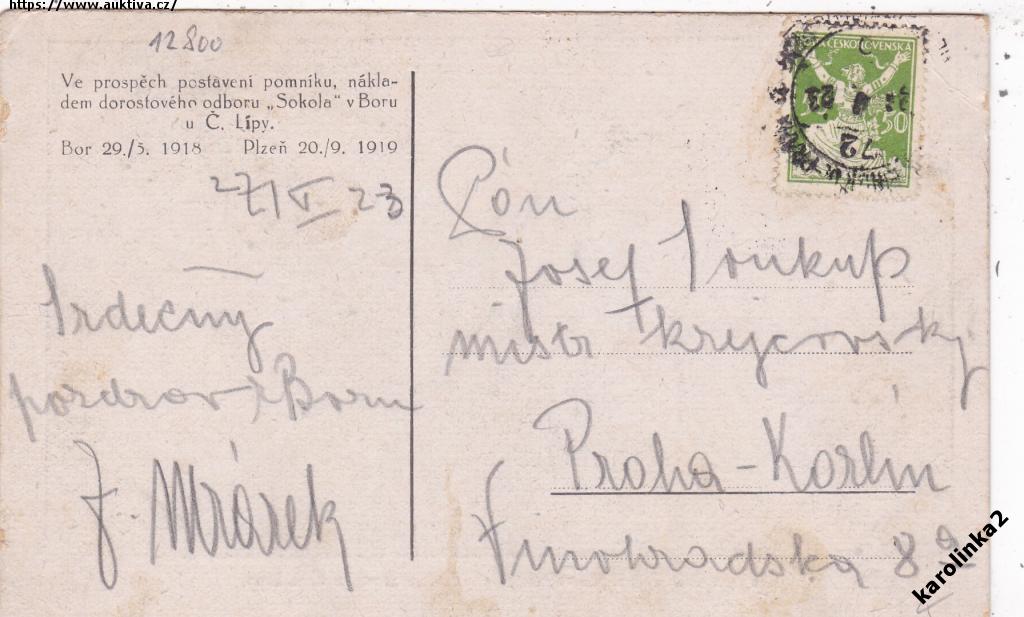 https://www.auktiva.cz/
12800
Ve prospěch postavení pomníku, nákla-
dem dorostového odboru „Sokola" v Boru
u Č. Lípy.
Bor 29./5. 1918 Plzeň 20./9. 1919
27/V 23
Srdečný
pozdrav z Boru
J. Mrázek
Pán
Josef Soukup
mistr krejčovský
Praha - Karlín
8
ČESKOSLOVENSKÁ
50
23
72
karolinka2